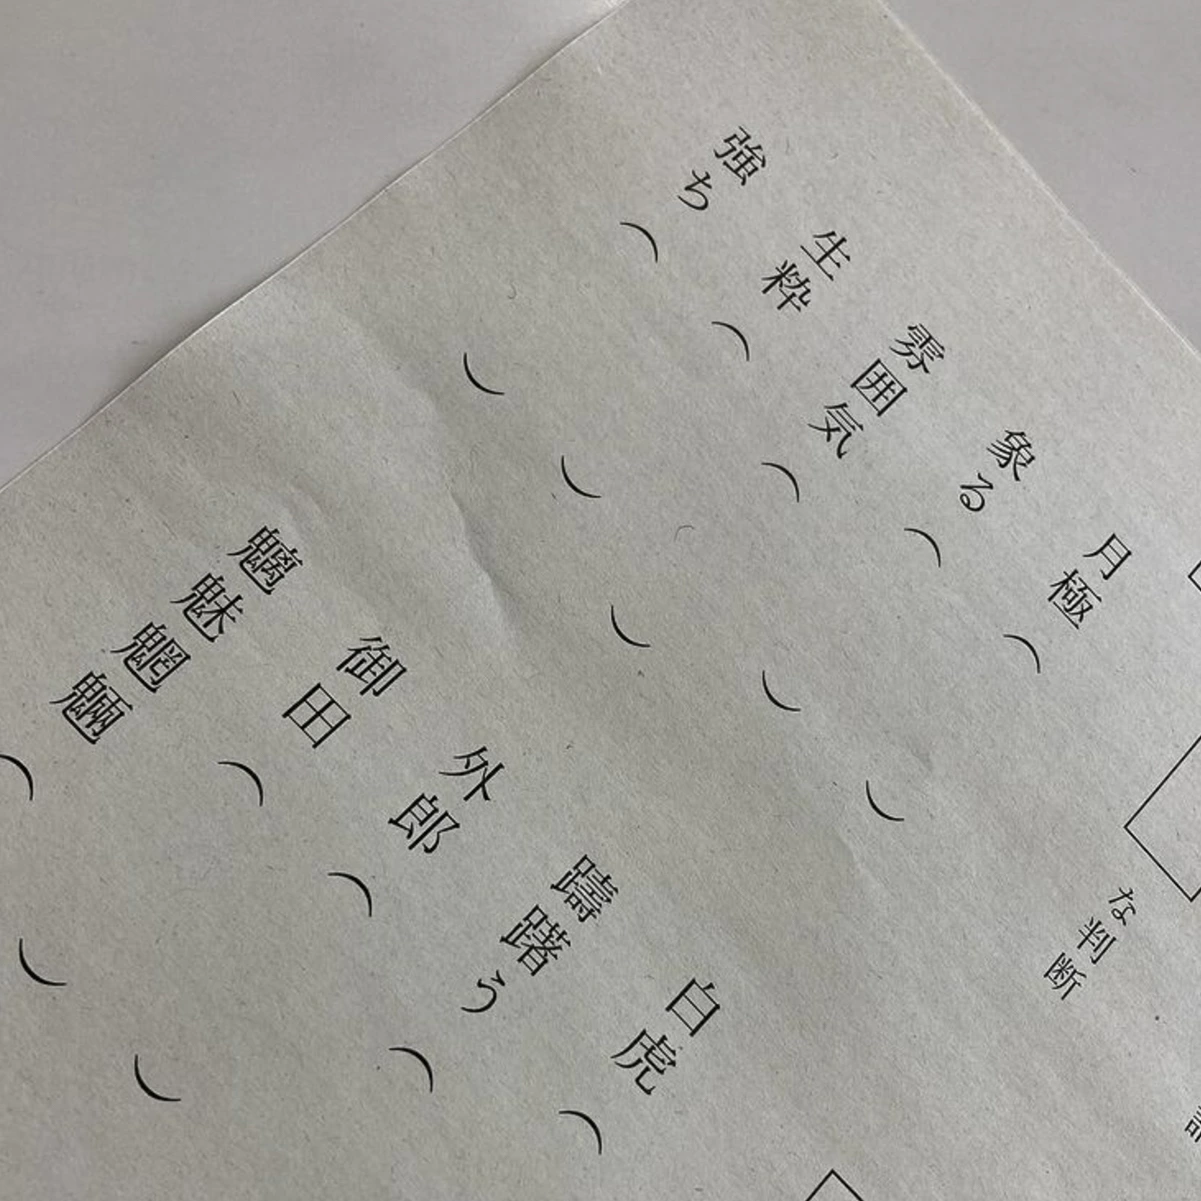 月極（　　　）
象る（　　　）
雰囲気（　　　）
生粋（　　　）
強ち（　　　）
な判断
白虎（
躊躇う（
外郎（
御田（　　　）
魑魅魍魎（　　　）